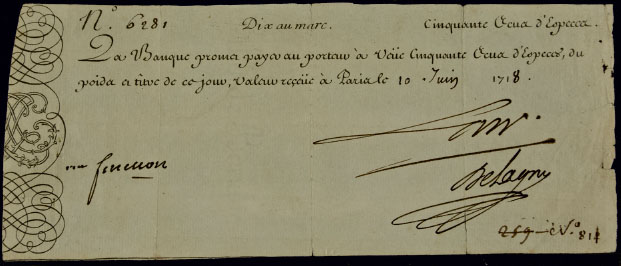 N.º 6281 Dix au marc. Cinquante Ecus d'Especes.
La Banque promet payer au porteur à Veüe Cinquante Ecus d'Especes, du
poids et titre de ce jour, valeur receüe à Paris le 10 Juin 1718.
Law.
fenellon
Delagny
259 - è V.º 81